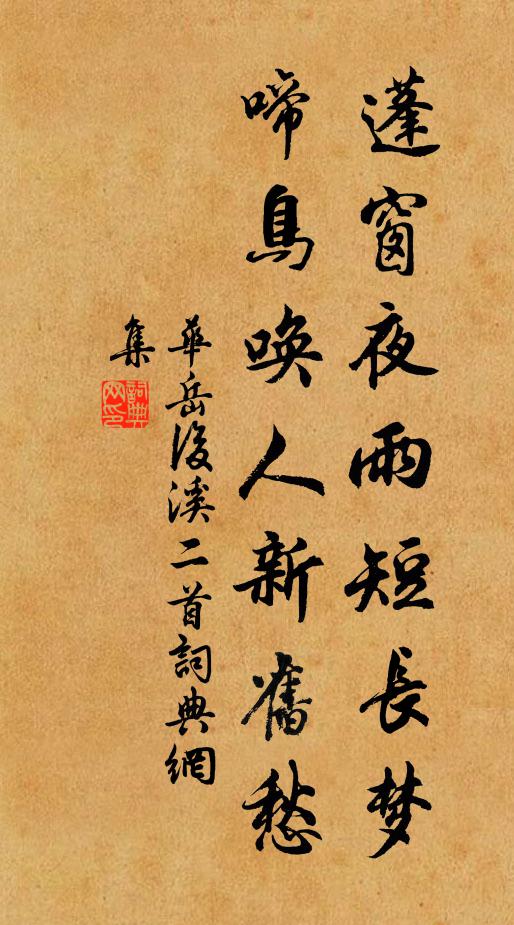 蓬窗夜雨短長梦
啼鳥唤人新舊愁
華岳後溪二首詞典網
集
詞典
网印